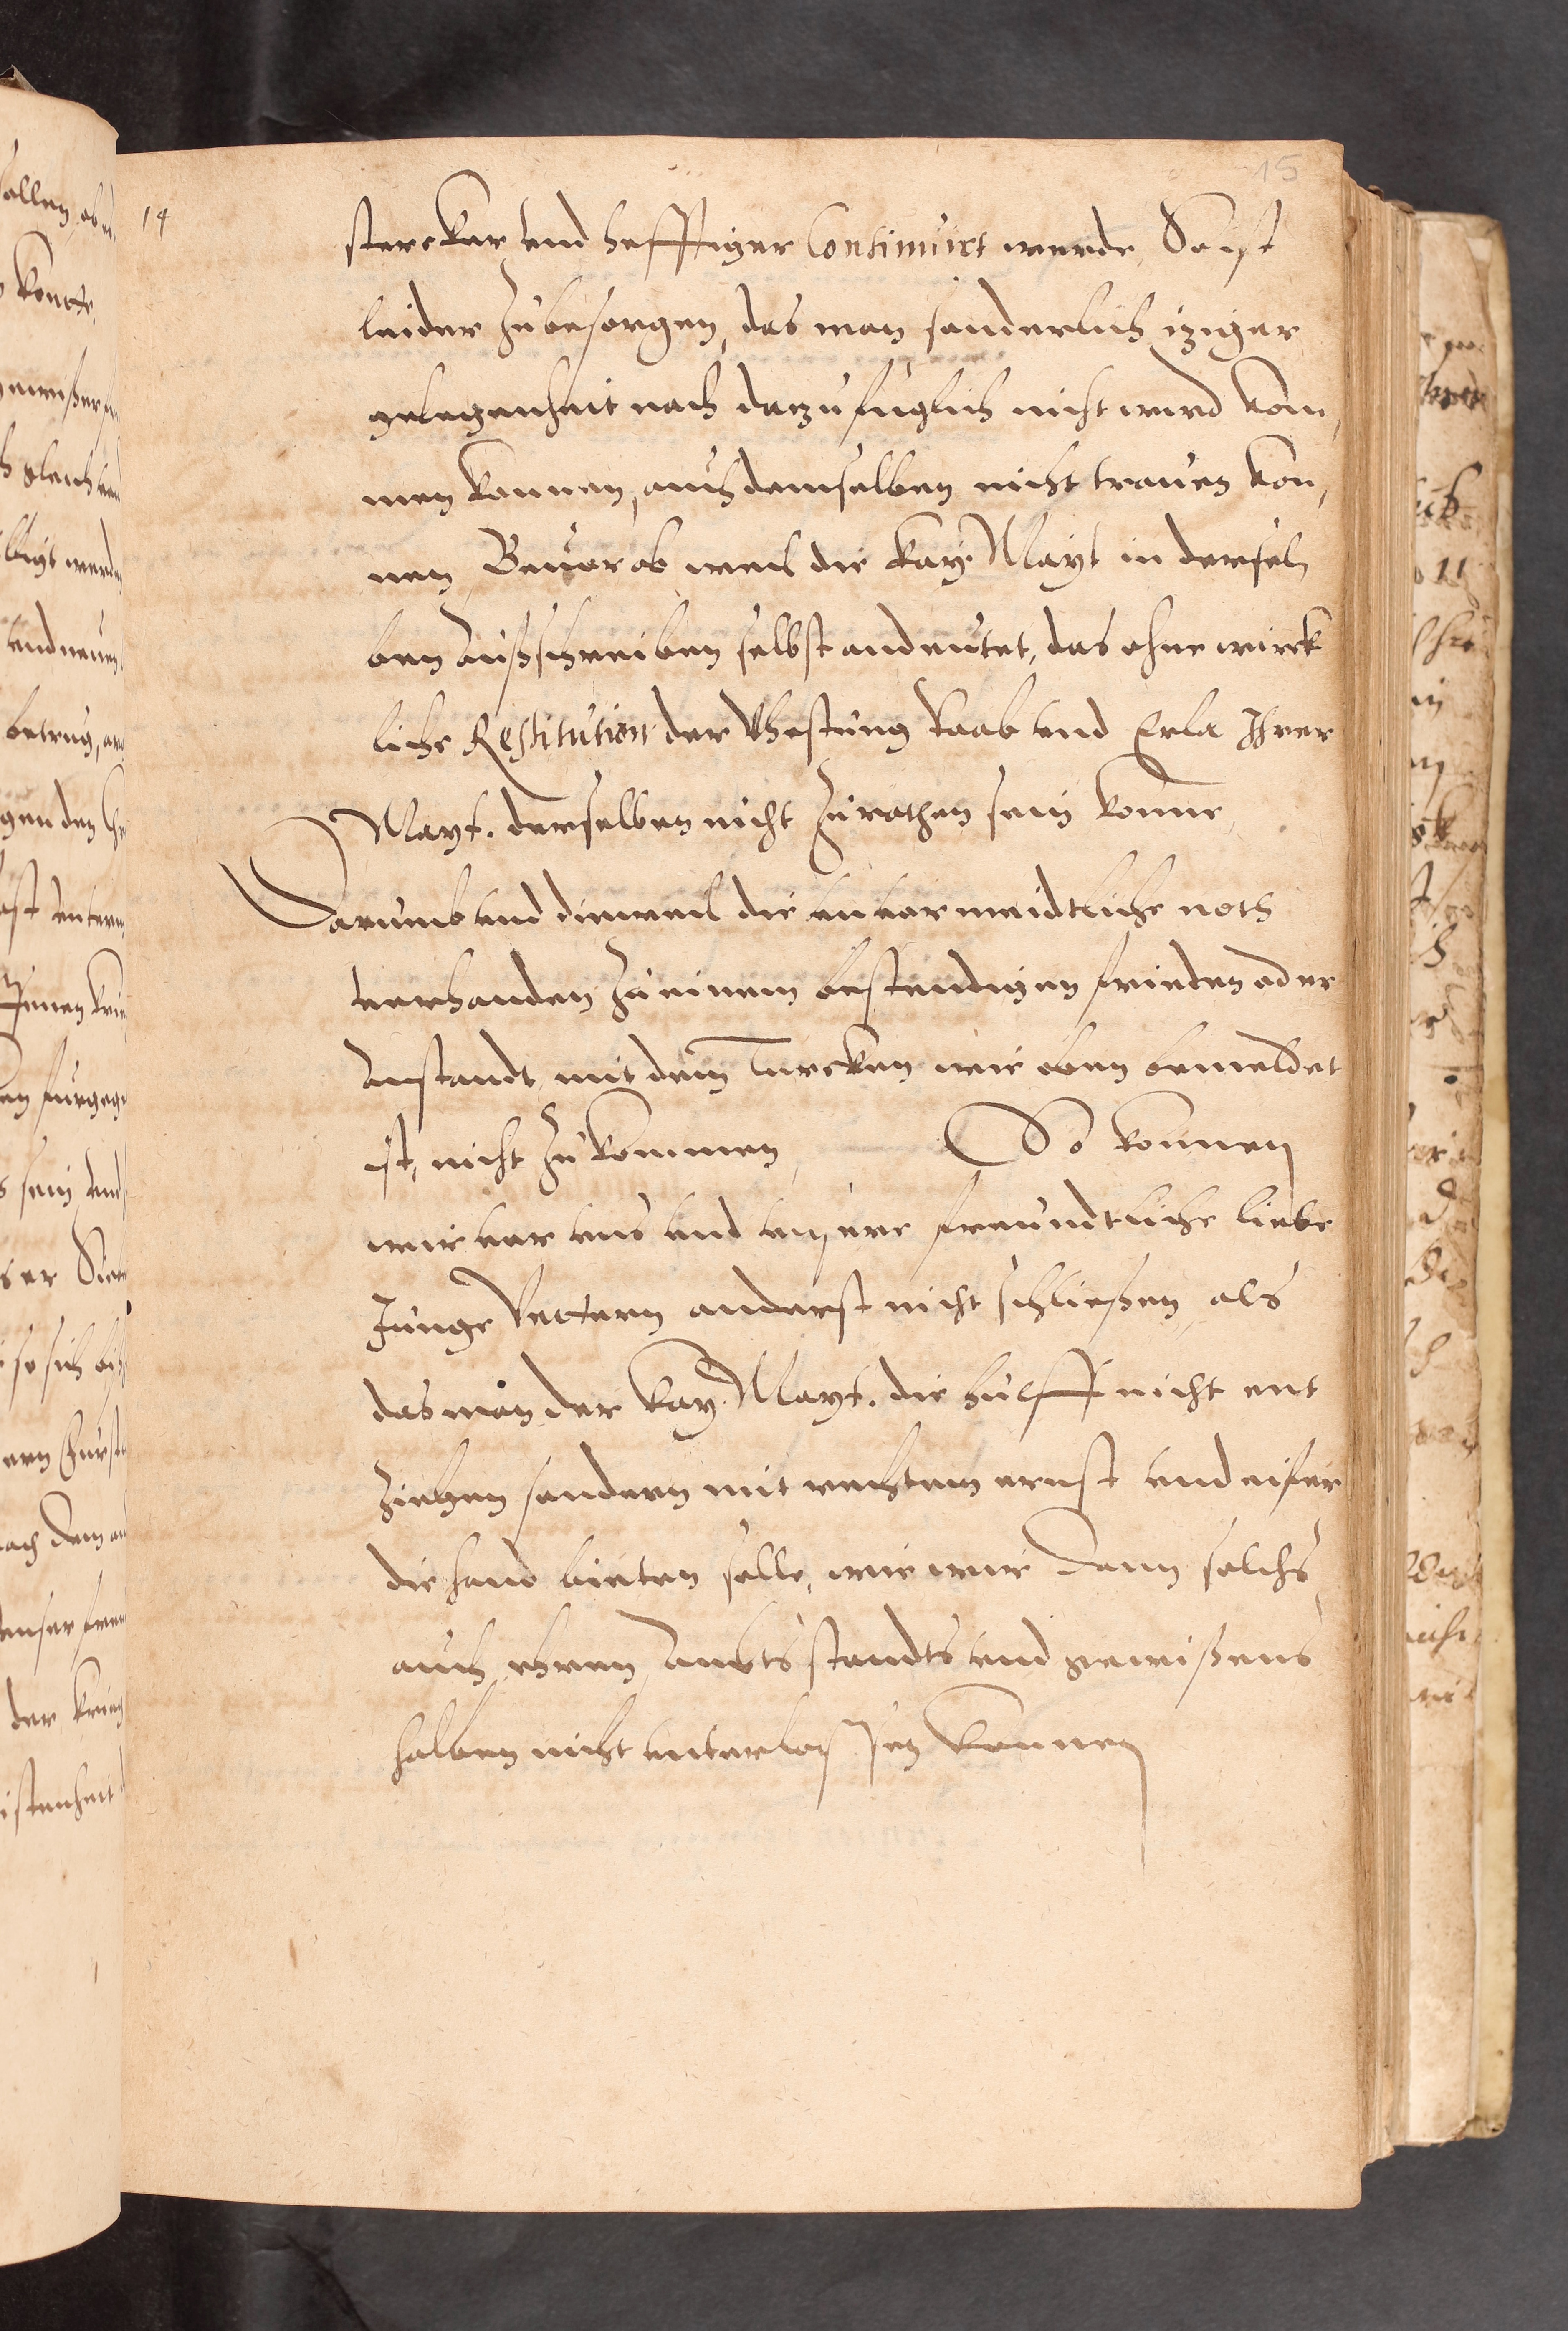 15
14
stercker vnd hefftiger Continuirt werde, So ist
leider zubesorgen, das man sonderlich iziger
gelegenheit nach darzu fuglich nicht wird kom,
men konnen, auch demselben nicht trauen kon,
nen, Beuorab weil die Kay. Mayt in dersel
ben Außschreiben selbst andeutet, das ohne wirck
liche Restitution der Vhestung Raab vnd Erla Ihrer
Mayt. derselben nicht zurathen sein konne,
Darumb vnd dieweil die vnuormeidtliche noth
verhanden zu einem bestendigen frieden oder
Anstandt mit dem Turcken wie oben bemeldet
ist, nicht zukommen, So konnen
wir vor vns vnd vnsere freundtliche liebe
Junge Vettern anderst nicht schließen, als
das man der Kay. Mayt. die hulff nicht ent
ziehen sondern mit rechtem ernst vnd eifer
die hand bieten solle, wie wir dann solchs
auch ehren, Ambts standts vnd gewißens
halben nicht vnterlassen konnen